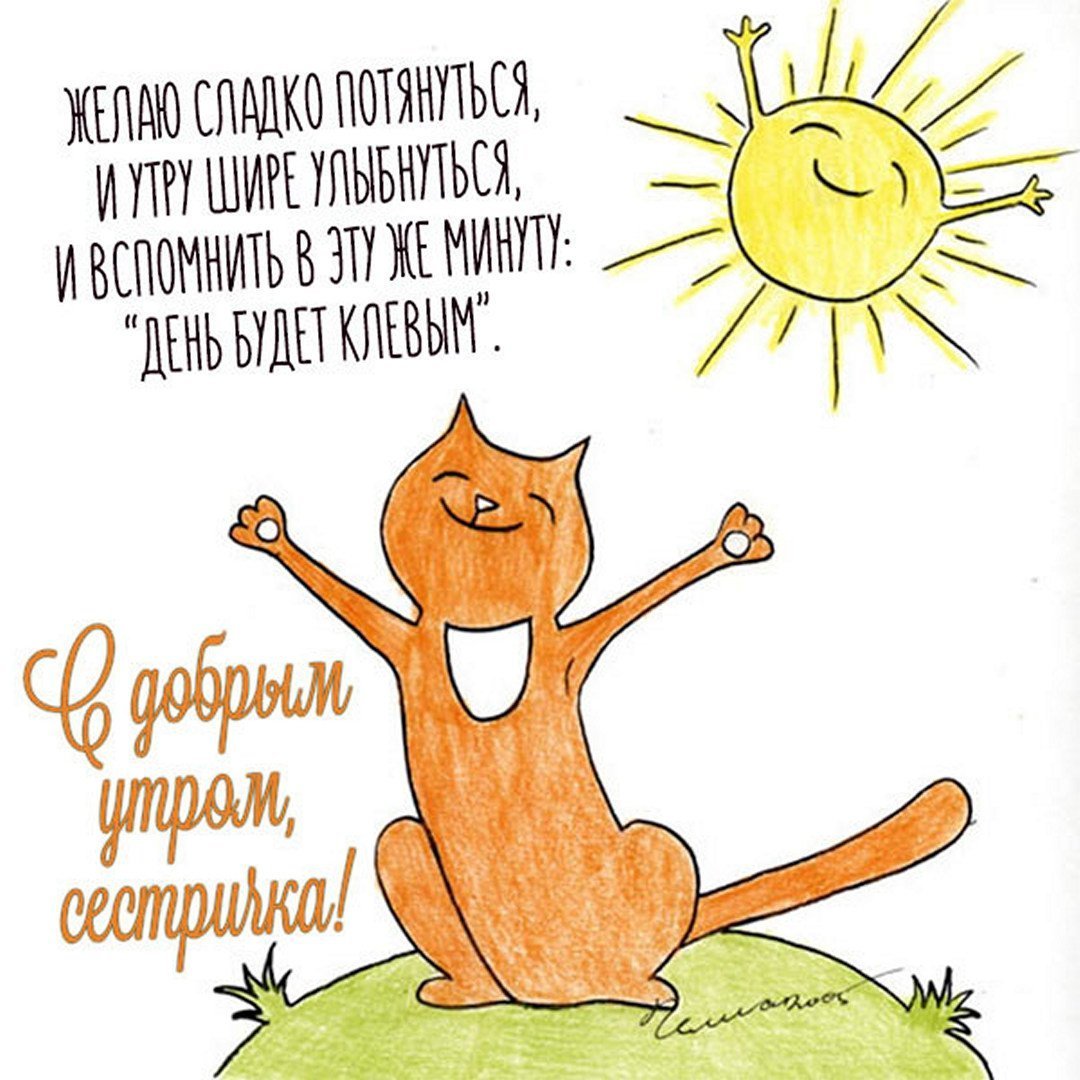 ЖЕЛАЮ СЛАДКО ПОТЯНУТЬСЯ,
И УТРУ ШИРЕ УЛЫБНУТЬСЯ,
И ВСПОМНИТЬ В ЭТУ ЖЕ МИНУТУ:
“ДЕНЬ БУДЕТ КЛЕВЫМ”.
С добрым
утром,
сестричка!